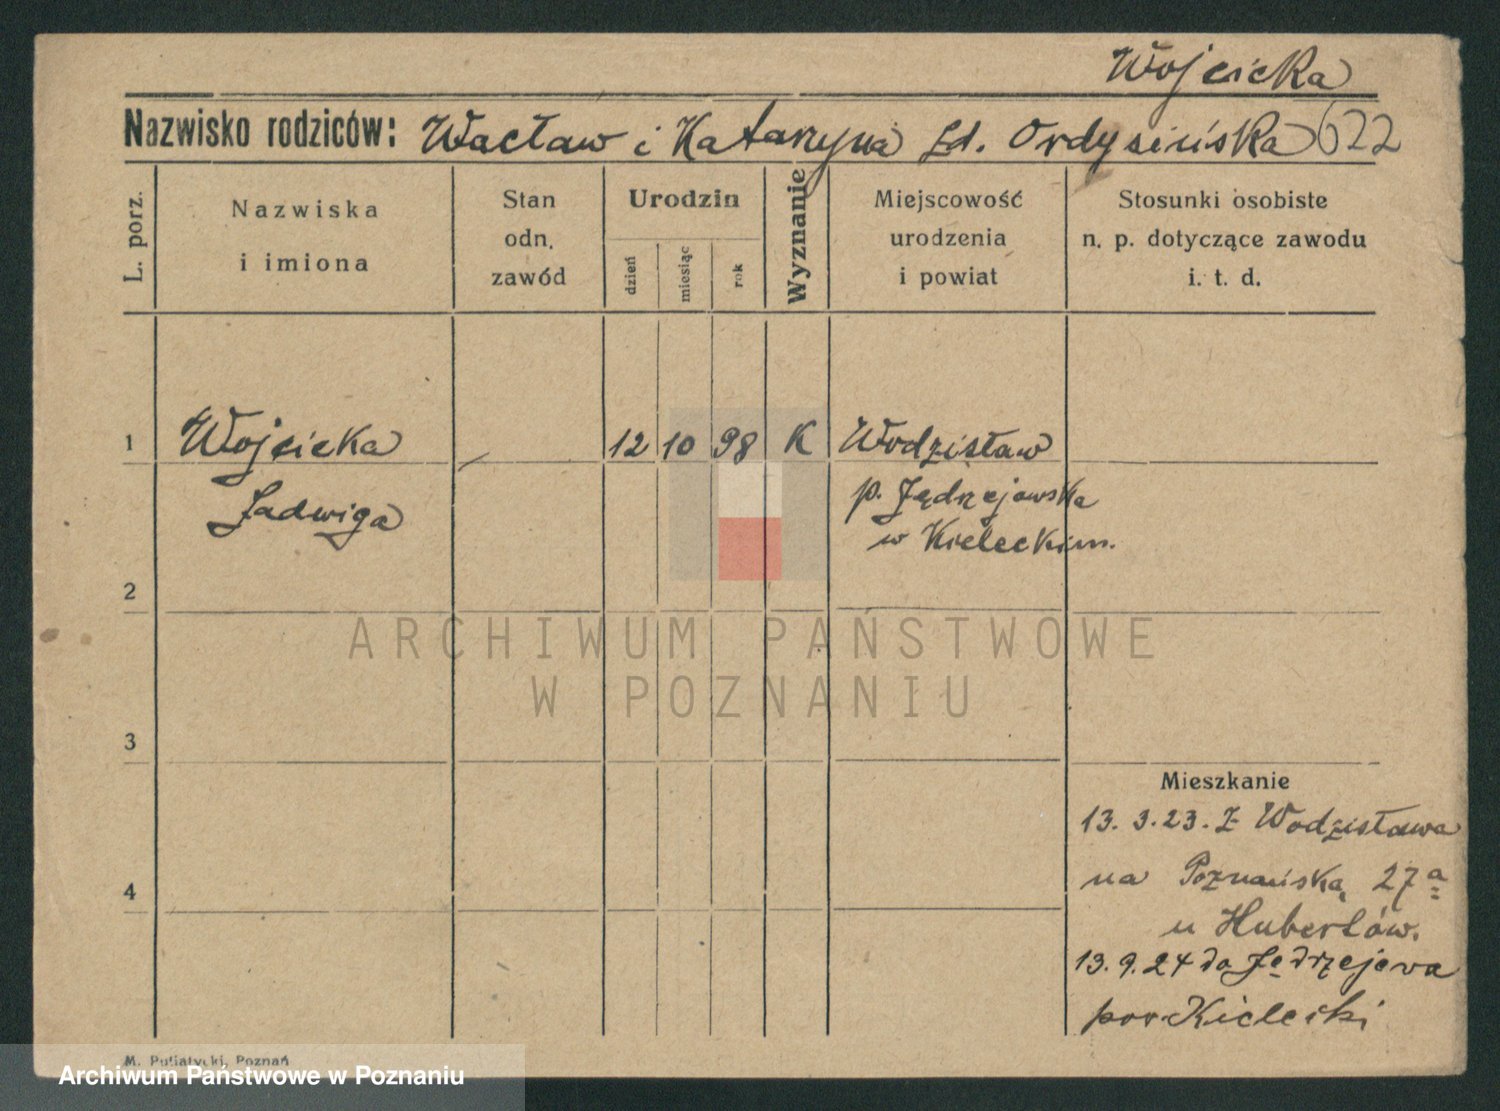 Wojcicka
Nazwisko rodziców: Wacław i Katarzyna zd. Ordysińska 622
L. porz.
Nazwiska
i imiona
Stan
odn.
zawód
Urodzin
dzień
miesiąc
rok
Wyznanie
Miejscowość
urodzenia
i powiat
Stosunki osobiste
n. p. dotyczące zawodu
i. t. d.
1 Wojcicka — 12 10 98 K Wodzisław
Jadwiga
p. Jędrzejowska
w Kieleckim.
2
3
4
Mieszkanie
13. 3. 23. Z Wodzisława
na Poznańską 27a
u Hubertów.
13. 9. 24 do Jędrzejewa
pow Kielecki
M. Putiatycki, Poznań
ARCHIWUM PAŃSTWOWE
W POZNANIU
Archiwum Państwowe w Poznaniu